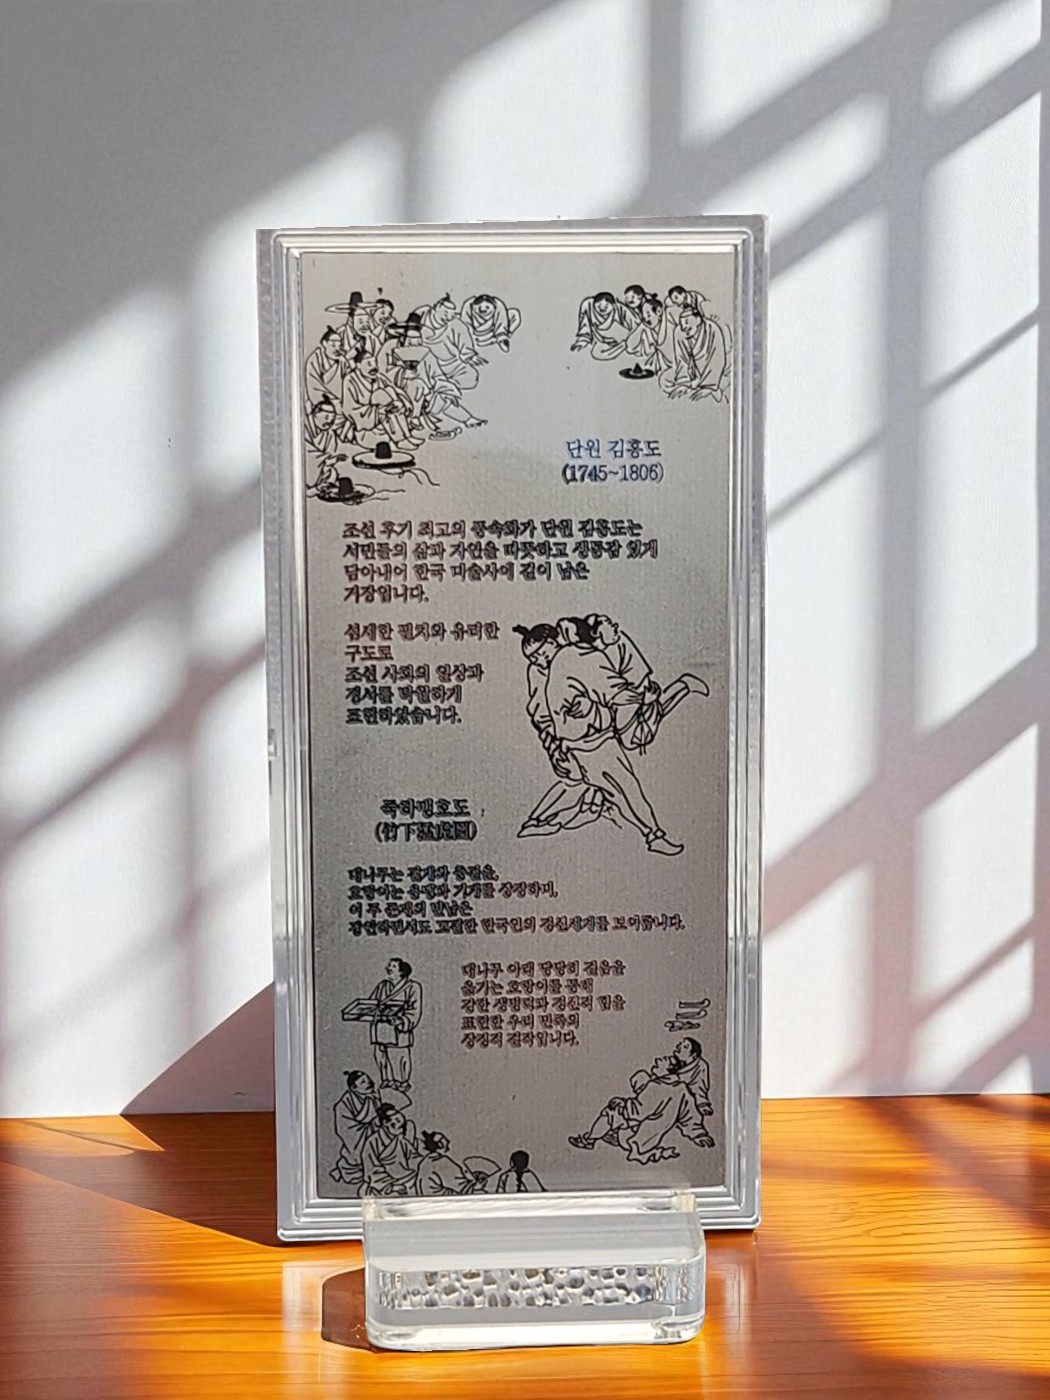 단원 김홍도
(1745~1806)
조선 후기 최고의 풍속화가 단원 김홍도는
서민들의 삶과 자연을 따뜻하고 생동감 있게
담아내어 한국 미술사에 길이 남은
거장입니다.
섬세한 필치와 유려한
구도로
조선 사회의 일상과
정서를 탁월하게
표현하였습니다.
죽하맹호도
(竹下猛虎圖)
대나무는 절개와 충절을,
호랑이는 용맹과 기개를 상징하며,
이 두 존재의 만남은
강인하면서도 고결한 한국인의 정신세계를 보여줍니다.
대나무 아래 당당히 걸음을
옮기는 호랑이를 통해
강한 생명력과 정신적 힘을
표현한 우리 민족의
상징적 걸작입니다.